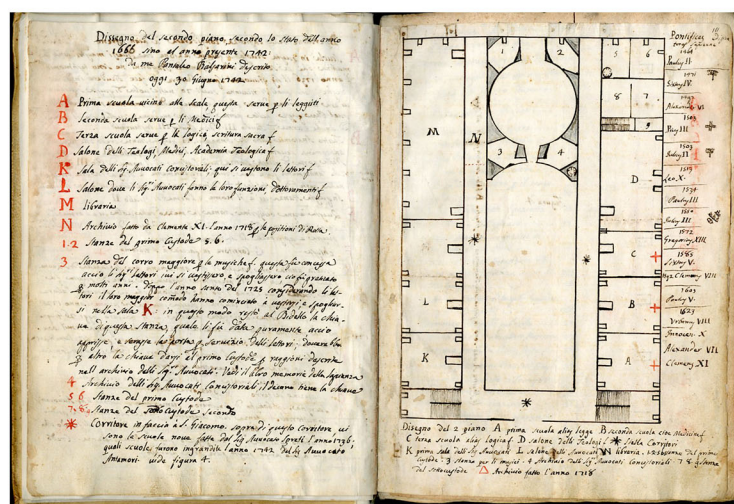 Disegno del secondo piano, secondo lo stato dell'anno
1666 sino al anno presente 1742.
da me Pantaleo Balsarini descrito
oggi 30 Giugno 1742
A Prima scuola vicino alle scale questa serve p li leggisti
B Seconda scuola serve p li Medici
C Terza scuola serve p la logica, scrittura sacra
D Salone delli Teologi, Medici, Academia Teologica
K Sala delli Sig. Avvocati Consistoriali, che si vestono li lettori
L Salone dove li Sig. Avvocati fanno la loro funzione Dottoramenti
M libraria
N Archivio fatto da Clemente XI. l'anno 1718 p le positioni di Rota
1.2 Stanze del primo Custode 5. 6.
3 Stanza del corro maggiore p le musiche questa fu concessa
accio li Sig. lettori ivi si vestissero, e spogliassero
p molti anni. l'anno santo del 1725 considerando li let-
tori il loro maggior comodo hanno cominciato a vestirsi, e spogliar-
si nella sala K: in questo modo restò al Bidello la chia-
ve di questa stanza, quale li fù data puramente accio
aprisse, e serasse la porta p servizio delli lettori; dovrebbe
p altro la chiave darsi al primo Custode p raggioni descritte
nell archivio delli Sig. Avvocati: Vedi il libro memorie della Sapienza
4 Archivio delli Sig. Avvocati Consistoriali, il decano tiene la chiave
5 6 Stanze del primo Custode
7. 8. 9 Stanze del Custode secondo
* Corritore in faccio a S. Giacomo: sopra di questo corritore vi
sono le scuole nove fatte dal Sig. Avvocato Spreti l'anno 1736.
quali scuole furono ingrandite l'anno 1742 dal Sig. Avvocato
Antamori. vide figura 4.
Pontifices
1464
Paulus II
1471
Sixtus IV.
1492
Alexander VI
1503
Pius III
1503
Julius II
1513
Leo. X.
1534
Paulus III
1550
Julius III
1572
Gregorius XIII
1585
Sixtus V.
Clemens VIII
1605
Paulus V.
1623
Urbanus VIII
Innocens X
Alexander VII
Clemens XI
1 2 5 6
8 7
9
3 4
M N D
C
L B
K A
Disegno del 2 piano A prima scuola alias legge B seconda scuola cioe Medicine
C terza scuola alias logica D salone delli Teologi * stella Corritori
K prima sala delli Sig. Avvocati L salone delli Avvocati M libraria. 1.2.5.6 stanze del primo
Custode 3 stanza per li musici. 4 Archivio delli Sig. Avvocati Consistoriali 7 8 9 stanza
del sottocustode △ Archivio fatto l'anno 1718